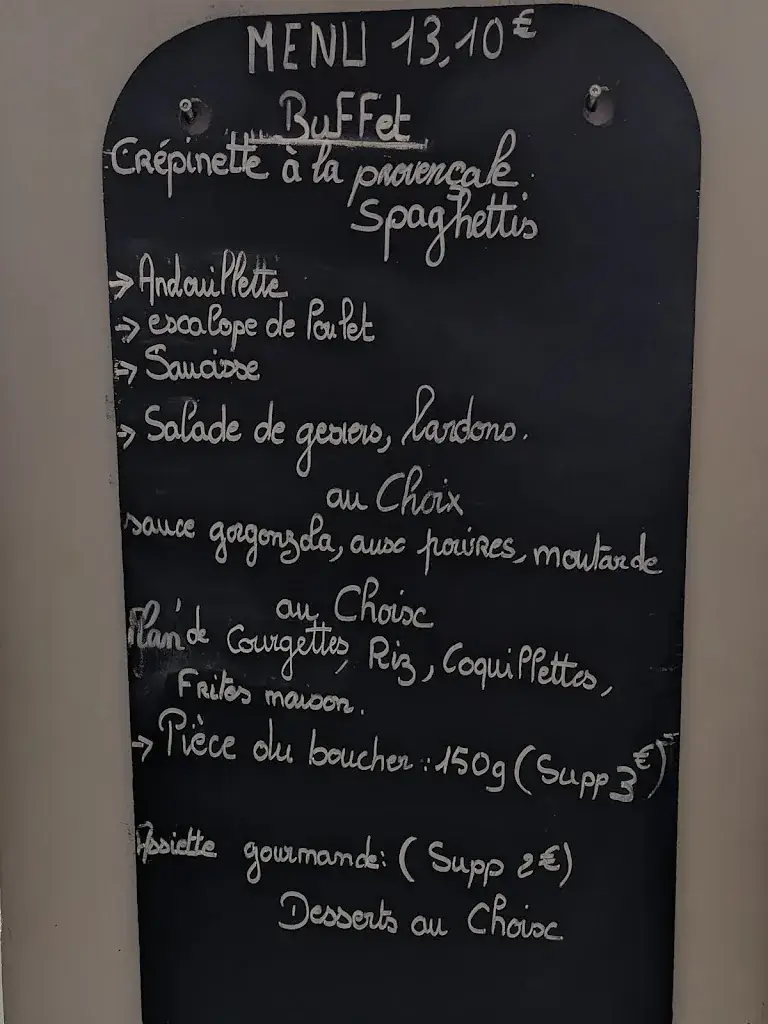 MENU 13,10€
Buffet
Crépinette à la provençale.
Spaghettis
→ Andouillette
→ escalope de Poulet
→ Saucisse
→ Salade de gesiers, lardons.
au Choix
sauce gorgonzola, aux poivres, moutarde
au Choix
Flan de Courgettes, Riz, Coquillettes,
Frites maison.
→ Pièce du boucher : 150g (Supp 3€)
Assiette gourmande: (Supp 2€)
Desserts au Choix